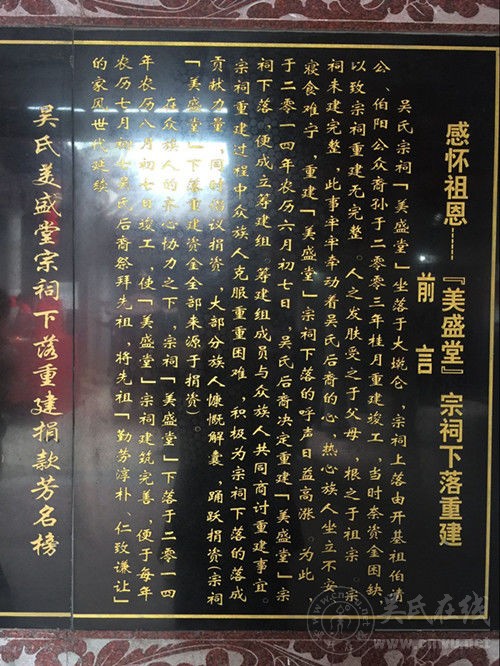 感怀祖恩——『美盛堂』宗祠下落重建
前言
吴氏宗祠「美盛堂」坐落于大垅仑，宗祠上落由开基祖伯清
公、伯阳公众裔孙于二零零三年桂月重建竣工，当时奉资金困缺
以致宗祠重建无完整。人之发肤受之于父母，根之于祖宗。宗
祠未建完整，此事牢牢牵动着吴氏后裔的心，热心族人坐立不安
寝食难宁，重建「美盛堂」宗祠下落的呼声日益高涨。为此，
于二零一四年农历六月初七日，吴氏后裔决定重建「美盛堂」宗
祠下落，便成立筹建组。筹建组成员与众族人共同商讨重建事宜。
宗祠重建过程中众族人克服重重困难，积极为宗祠下落的落成
贡献力量，同时倡议捐资，大部分族人慷慨解囊，踊跃捐资(宗祠
「美盛堂」下落重建资金全部来源于捐资)。
在众族人的齐心协力之下，宗祠「美盛堂」下落于二零一四
年农历八月初七日竣工，使「美盛堂」宗祠建筑完善，便于每年
农历七月初七吴氏后裔祭拜先祖，将先祖「勤劳淳朴、仁致谦让」
的家风世代延续
吴氏美盛堂宗祠下落重建捐款芳名榜
吴氏在线
www.cnwu.net